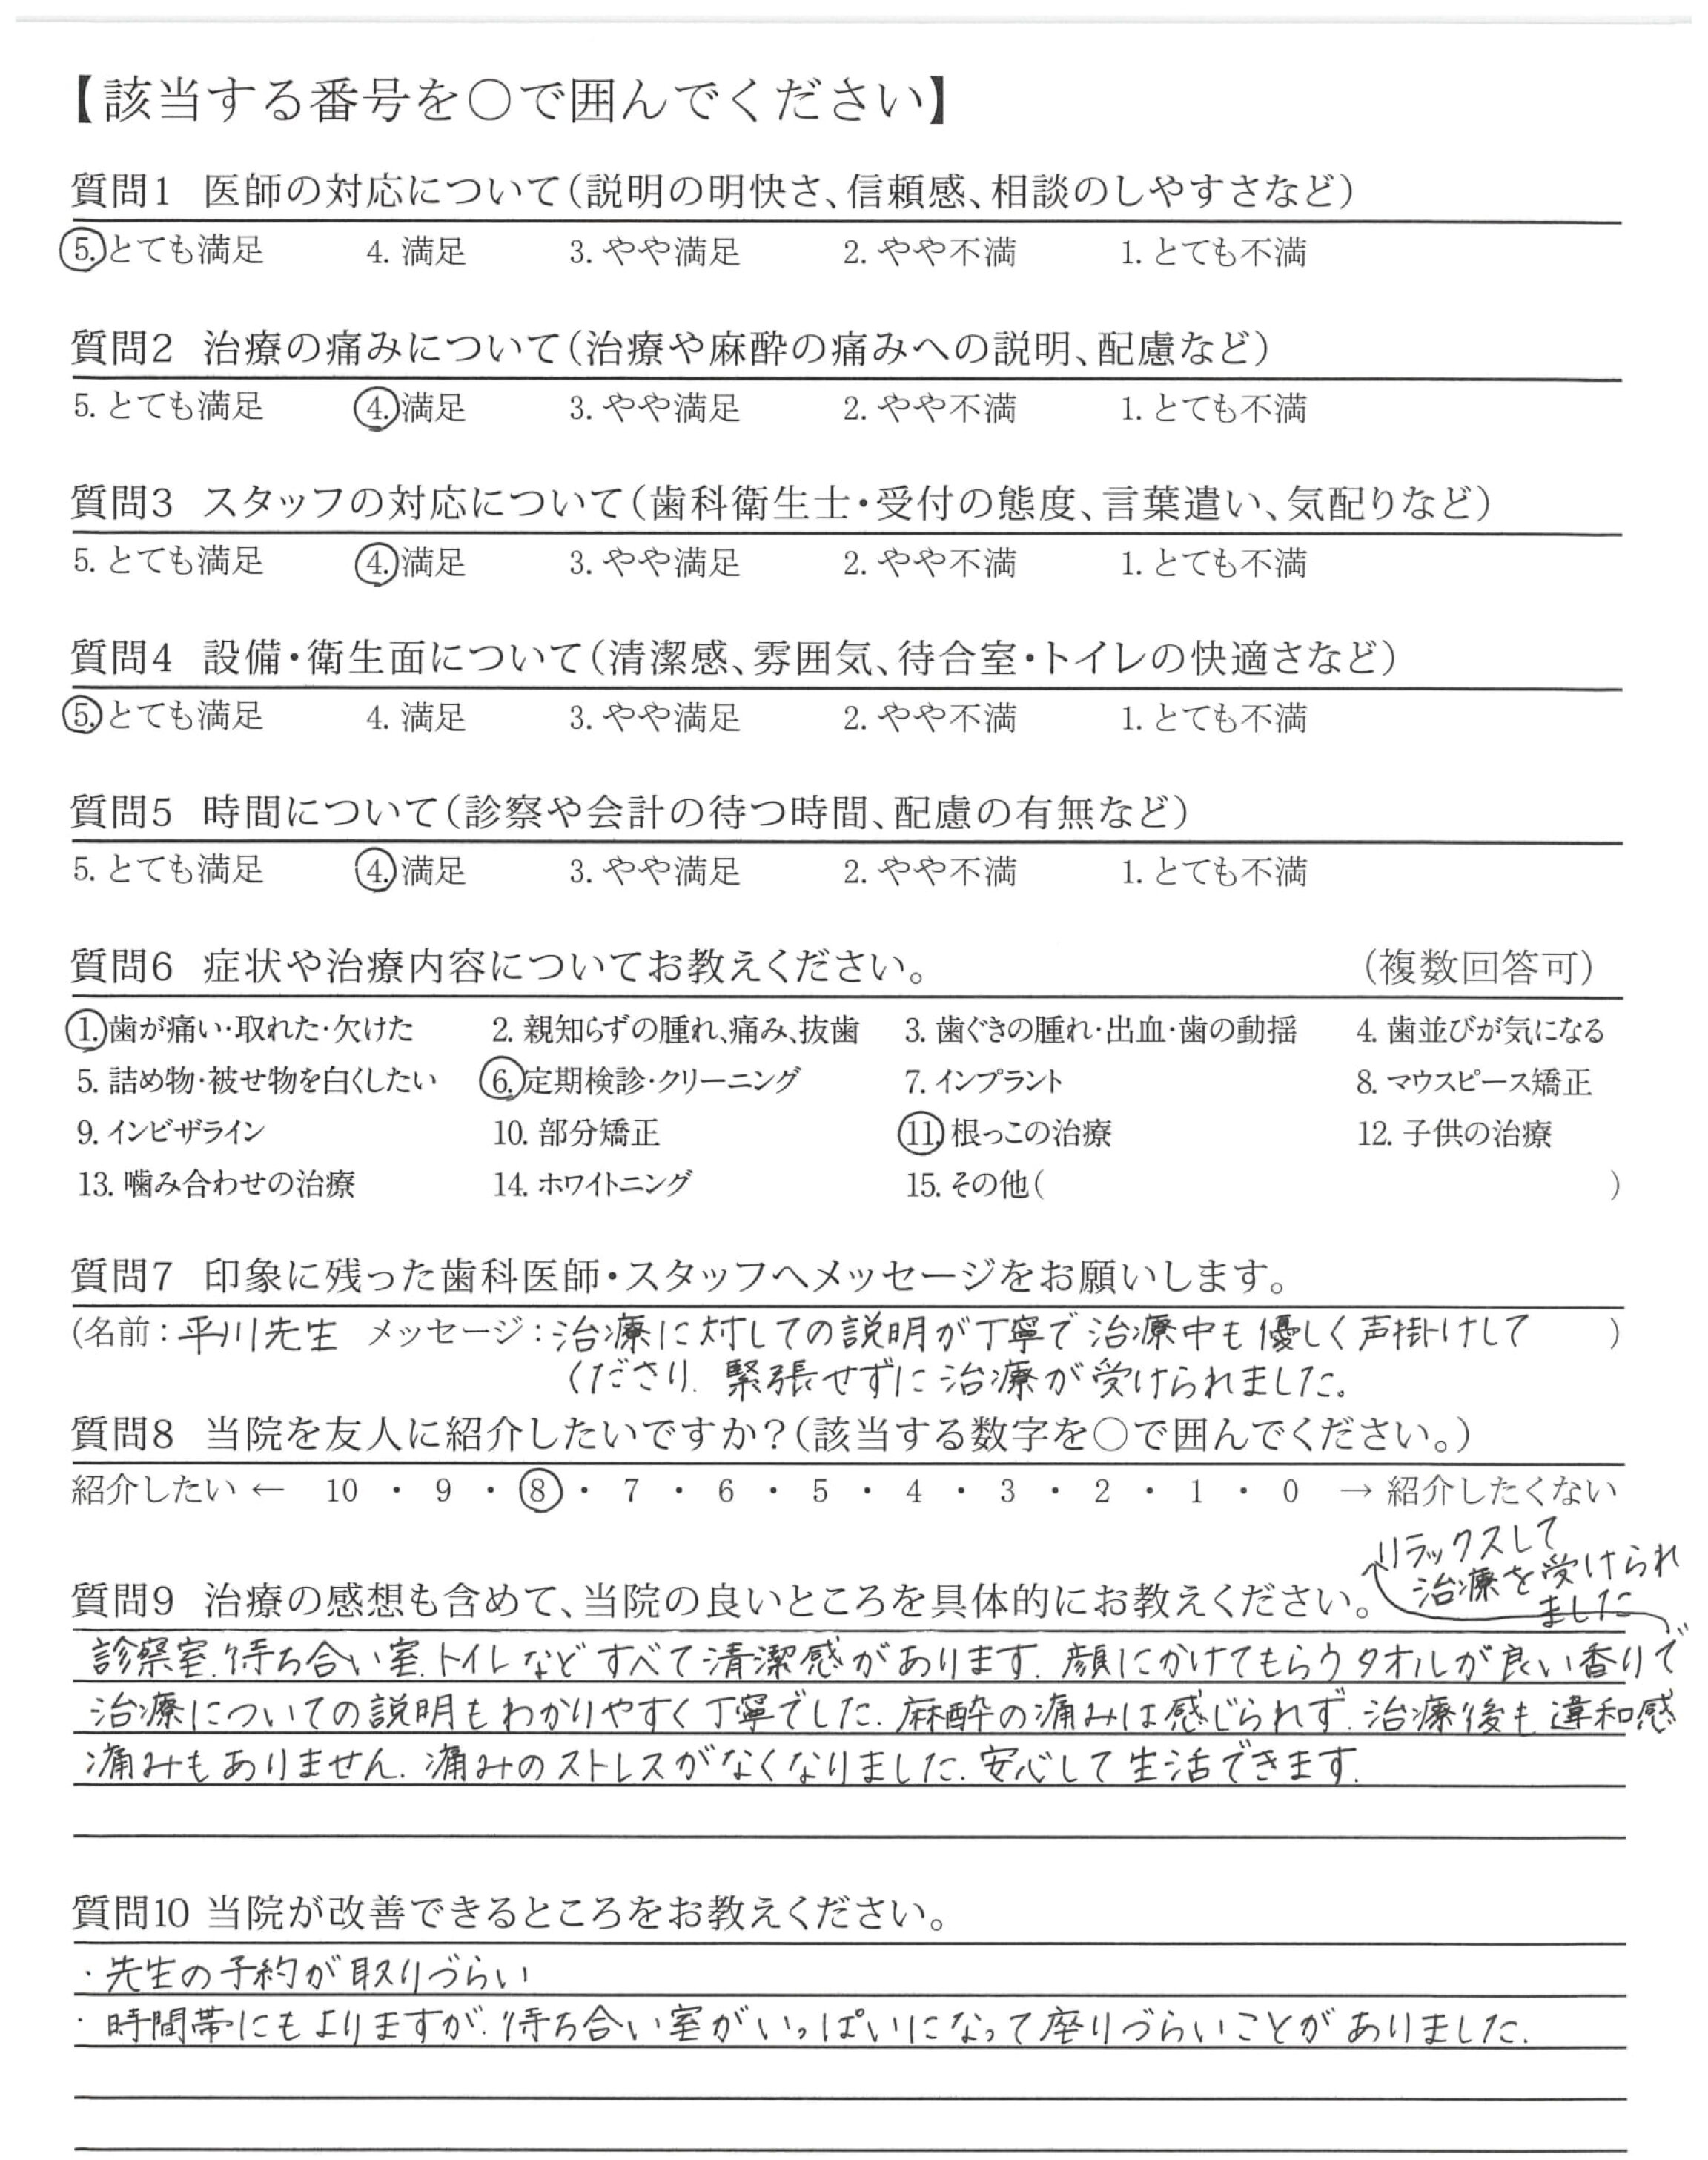 【該当する番号を○で囲んでください】
質問1 医師の対応について(説明の明快さ、信頼感、相談のしやすさなど)
5. とても満足 4. 満足 3. やや満足 2. やや不満 1. とても不満
質問2 治療の痛みについて(治療や麻酔の痛みへの説明、配慮など)
5. とても満足 4. 満足 3. やや満足 2. やや不満 1. とても不満
質問3 スタッフの対応について(歯科衛生士・受付の態度、言葉遣い、気配りなど)
5. とても満足 4. 満足 3. やや満足 2. やや不満 1. とても不満
質問4 設備・衛生面について(清潔感、雰囲気、待合室・トイレの快適さなど)
5. とても満足 4. 満足 3. やや満足 2. やや不満 1. とても不満
質問5 時間について(診察や会計の待つ時間、配慮の有無など)
5. とても満足 4. 満足 3. やや満足 2. やや不満 1. とても不満
質問6 症状や治療内容についてお教えください。 (複数回答可)
1. 歯が痛い・取れた・欠けた 2. 親知らずの腫れ、痛み、抜歯 3. 歯ぐきの腫れ・出血・歯の動揺 4. 歯並びが気になる
5. 詰め物・被せ物を白くしたい 6. 定期検診・クリーニング 7. インプラント 8. マウスピース矯正
9. インビザライン 10. 部分矯正 11. 根っこの治療 12. 子供の治療
13. 噛み合わせの治療 14. ホワイトニング 15. その他( )
質問7 印象に残った歯科医師・スタッフへメッセージをお願いします。
(名前:平川先生 メッセージ:治療に対しての説明が丁寧で治療中も優しく声掛けして )
くださり、緊張せずに治療が受けられました。
質問8 当院を友人に紹介したいですか?(該当する数字を○で囲んでください。)
紹介したい ← 10 ・ 9 ・ 8 ・ 7 ・ 6 ・ 5 ・ 4 ・ 3 ・ 2 ・ 1 ・ 0 → 紹介したくない
質問9 治療の感想も含めて、当院の良いところを具体的にお教えください。
診察室、待ち合い室、トイレなどすべて清潔感があります。顔にかけてもらうタオルが良い香りで
リラックスして
治療を受けられ
ました
治療についての説明もわかりやすく丁寧でした。麻酔の痛みは感じられず、治療後も違和感
痛みもありません。痛みのストレスがなくなりました。安心して生活できます。
質問10 当院が改善できるところをお教えください。
・先生の予約が取りづらい
・時間帯にもよりますが、待ち合い室がいっぱいになって座りづらいことがありました。